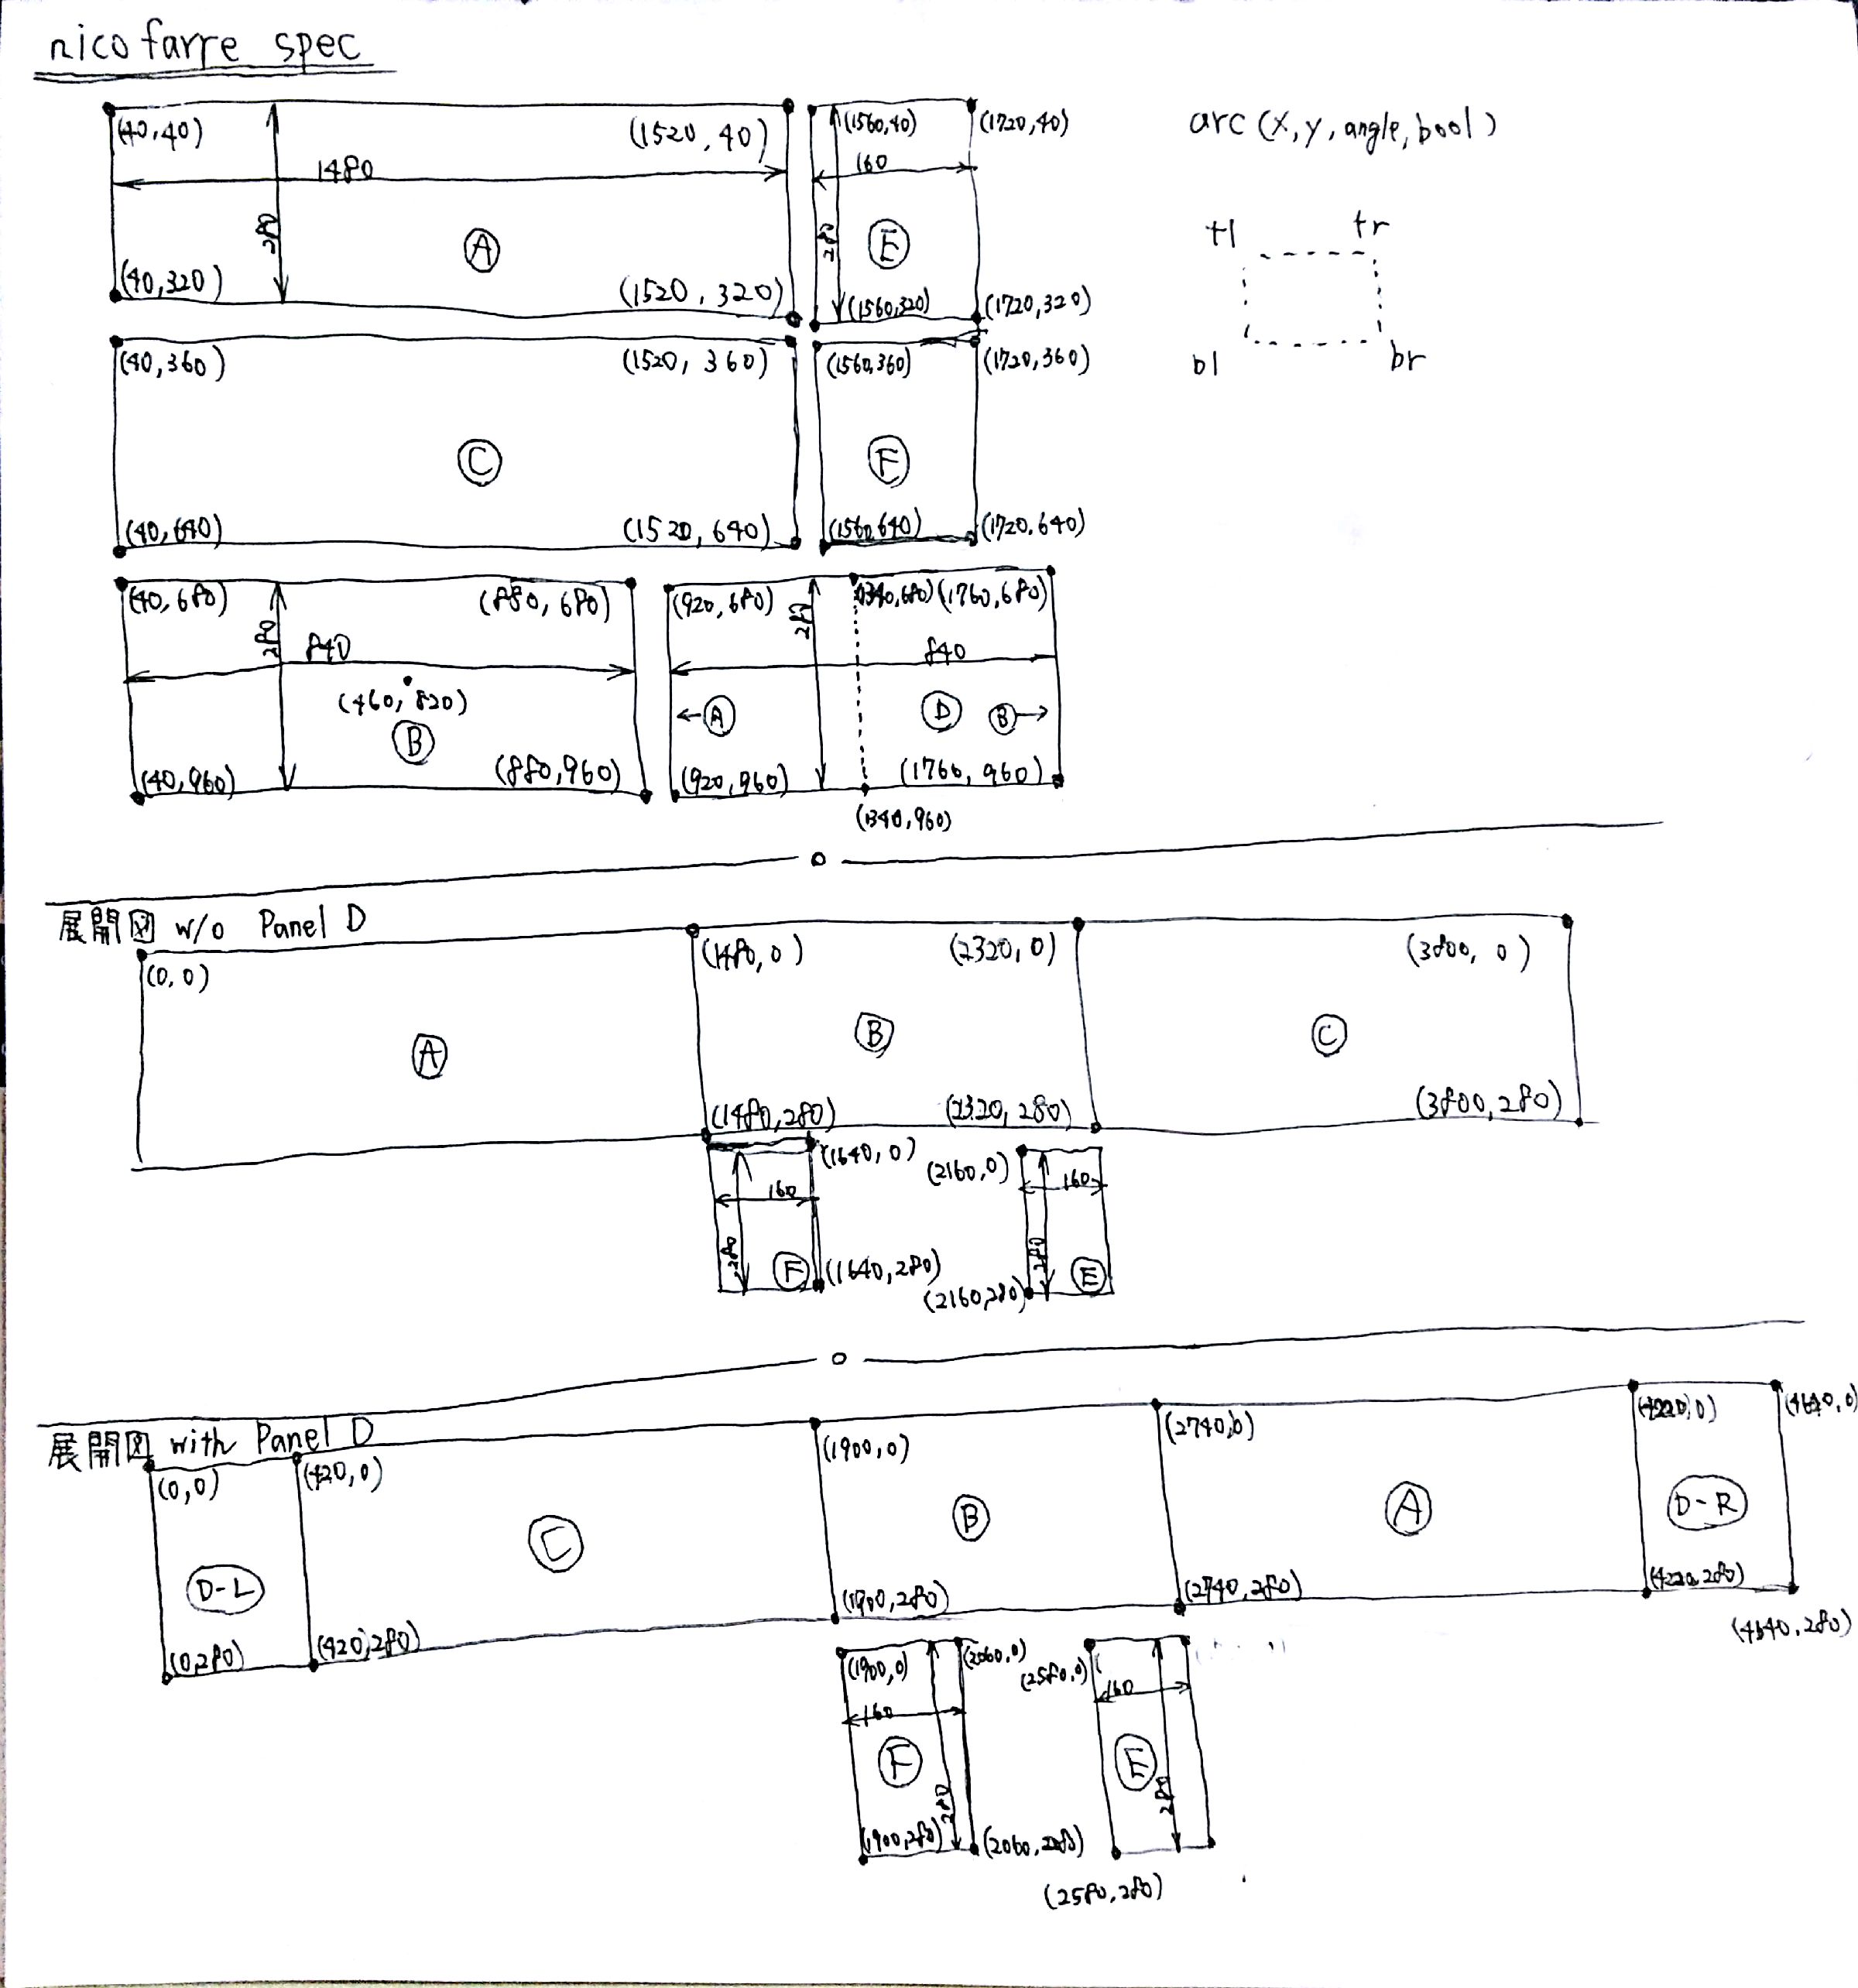 nicofarre spec
(40,40)
(1520,40)
1480
280
Ⓐ
(40,320)
(1520,320)
(1560,40)
(1720,40)
160
280
Ⓔ
(1560,320)
(1720,320)
arc(x,y,angle,bool)
tl
tr
bl
br
(40,360)
(1520,360)
Ⓒ
(40,640)
(1520,640)
(1560,360)
(1720,360)
Ⓕ
(1560,640)
(1720,640)
(40,680)
(880,680)
280
840
(460,820)
Ⓑ
(40,960)
(880,960)
(920,680)
280
(1340,680)
(1760,680)
840
←Ⓐ
Ⓓ
Ⓑ→
(920,960)
(1760,960)
(1340,960)
展開図 w/o Panel D
(0,0)
(1480,0)
(2320,0)
(3800,0)
Ⓐ
Ⓑ
Ⓒ
(1480,280)
(2320,280)
(3800,280)
(1640,0)
(2160,0)
160
160
280
280
Ⓕ
(1640,280)
(2160,280)
Ⓔ
展開図 with Panel D
(0,0)
(420,0)
(1900,0)
(2740,0)
(4220,0)
(4640,0)
D-L
Ⓒ
Ⓑ
Ⓐ
D-R
(0,280)
(420,280)
(1900,280)
(2740,280)
(4220,280)
(4640,280)
(1900,0)
(2060,0)
(2580,0)
160
160
Ⓕ
280
Ⓔ
280
(1900,280)
(2060,280)
(2580,280)